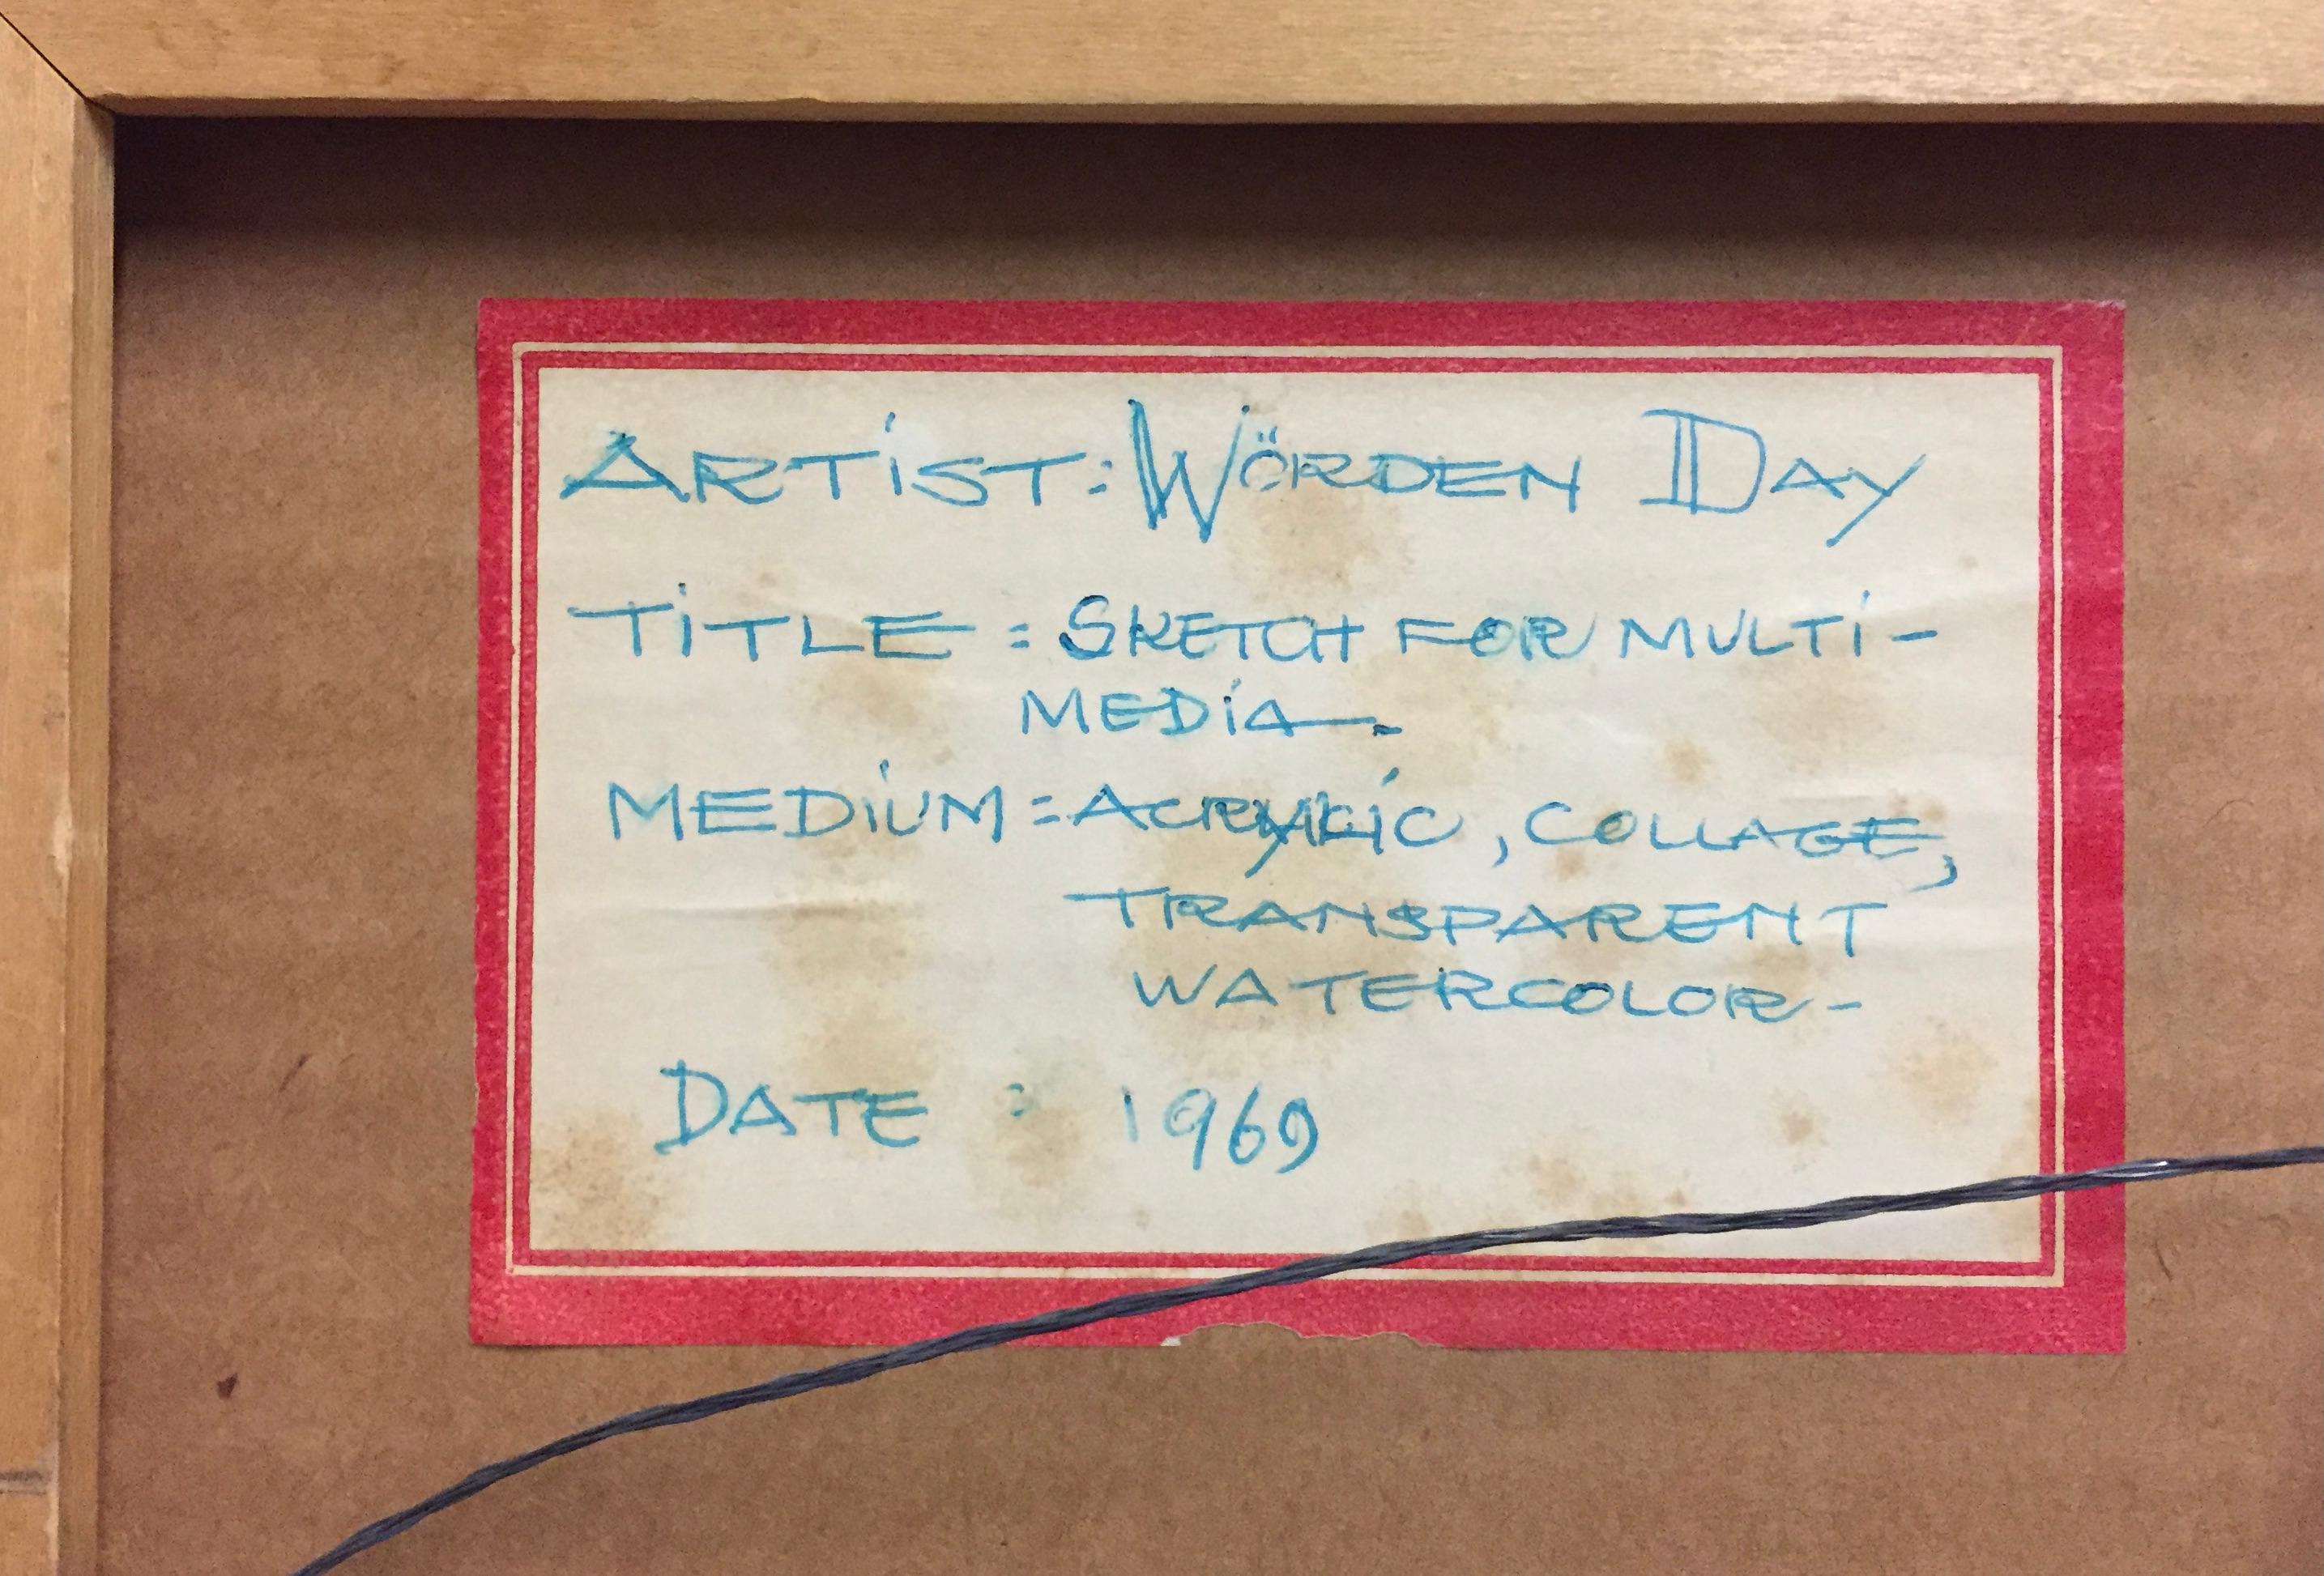 ARTiST: WÖRDEN DAY
TiTLE = SKETCH FOR MULTi-
MEDiA.
MEDiUM = ACRYLiC, COLLAGE,
TRANSPARENT
WATERCOLOR-
DATE : 1969